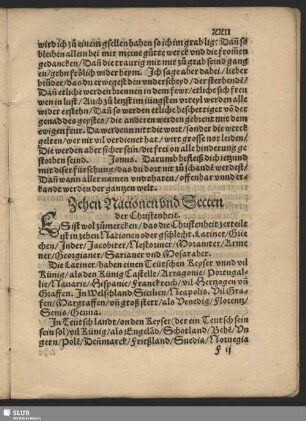 XXII
wird ich zů einem gsellen haben so ich im grab lig: Dañ so
bleiben allen bei mir meine gůtte werck vnd die fromen
gedancken/ Dañ die traurig mit mir zů grab seind gang
en/ gehn frölich wider heym. Ich sage aber dabei/ lieber
brůder/ das du erwegest den vnderscheyd/ der erstehend/
Dañ etliche werden brennen in dem fewr/ etliche sich freu
wen in lust/ Auch zů letst im jüngsten vrteyl werden alle
wider erstehn/ Dañ so werden etliche beschettiget võ der
genad des goysten/ die anderen werden gehrent mit dem
ewigen feur. Da werden nit die wort/ sonder die werck
gelten/ wer nit vil verdienet hat/ wirt grosse not leiden/
Die werden aber sicher sein/ die frei on alle hinderung ge
storben seind. Jonus. Darumb befleiß dich ietzund
mit diser fürsehung/ das du dort nit zů schand werdest/
Dañ wann aller namen vnd thaten/ offenbar vnd er
kandt werden der gantzen welt.
Zehen Nationen vnd Secten
der Christenheit.
ES ist wol zů mercken/ das die Christenheit zerteilt
ist in zehen Nationen oder gschlecht. Latiner/ Grie
chen/ Inder/ Jacobiter/ Nestoriner/ Moraniter/ Arme
ner/ Georgianer/ Surianer vnd Mosaraber.
Die Latiner/ haben einen Teütschen Keyser vnnd vil
Künig/ als den Künig Castelle/ Arragonie/ Portugal-
lie/ Nauarie/ Hispanie/ Franckreich/ vil Hertzogen vñ
Graffen. In Welschland Sicilien/ Neapolis. Vil Gra-
fen/ Margraffen/ vñ groß stett/ als Venedig/ Florentz/
Senis/ Genna.
In Teutschland/ on den Keyser (der ein Teutsch sein
sein sol) vil Künig/ als Engelãd/ Schotland/ Behẽ/ Vn
gern/ Polẽ/ Deñmarck/ Frießland/ Suedia/ Noruegia
f ij
SLUB